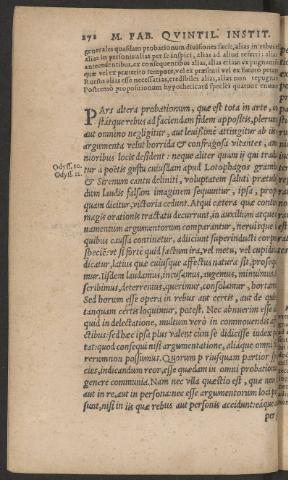 272 M. FAB. QVINTIL. INSTIT.
generales quasdam probationum divisiones facit, alias in rebus
alias in personis: alias per se inspici, alias ad aliud referri: alias
antecedentibus, ex consequentibus alias, alias etiam ex pugnantibus
quæ vel ex præterito tempore, vel ex præsenti vel ex futuro petun
Rursus alias esse necessarias, credibiles alias, alias non repugnan
Postremo propositionum hypotheticarũ species quatuor enume
PArs altera probationum, quæ est tota in arte,
stitque rebus ad faciendam fidem appositis, plerun
aut omnino negligitur, aut levissime attingitur ab iis
argumenta velut horrida & confragosa vitantes, am
nioribus locis desident: neque aliter quam ij qui tradu
Odyss. 10. tur à poetis gustu cuiusdam apud Lotophagos gramin
Odyss. 12. & Sirenum cantu deliniti, voluptatem saluti prætul
dum laudis falsam imaginem sequuntur, ipsa, prop
quam dicitur, victoria cedunt. Atqui cætera quæ conti
magis orationis tractatu decurrunt, in auxilium atque
namentum argumentorum comparantur, nervisque
quibus causa continetur, adiiciunt superinducti corp
speciẽ: vt si fortè quid factum ira, vel metu, vel cupidit
dicatur, latius quæ cuiusque affectus natura sit, prose
mur. Iisdem laudamus, incusamus, augemus, minuimus
scribimus, deterremus, querimur, consolamur, hortam
Sed horum esse opera in rebus aut certis, aut de qu
tanquam certis loquimur, potest. Nec abnuerim esse
quid in delectatione, multum verò in commovendis af
ctibus: sed hæc ipsa plus valent cùm se didicisse iudex
tat: quod consequi nisi argumentatione, aliaque omni
rerum non possumus. Quorum priusquam partior
cies, indicandum reor, esse quædam in omni probation
genere communia. Nam nec vlla quæstio est, quæ non
aut in re, aut in persona: nec esse argumentorum loci
sunt, nisi in iis quæ rebus aut personis accidunt: eaque
per